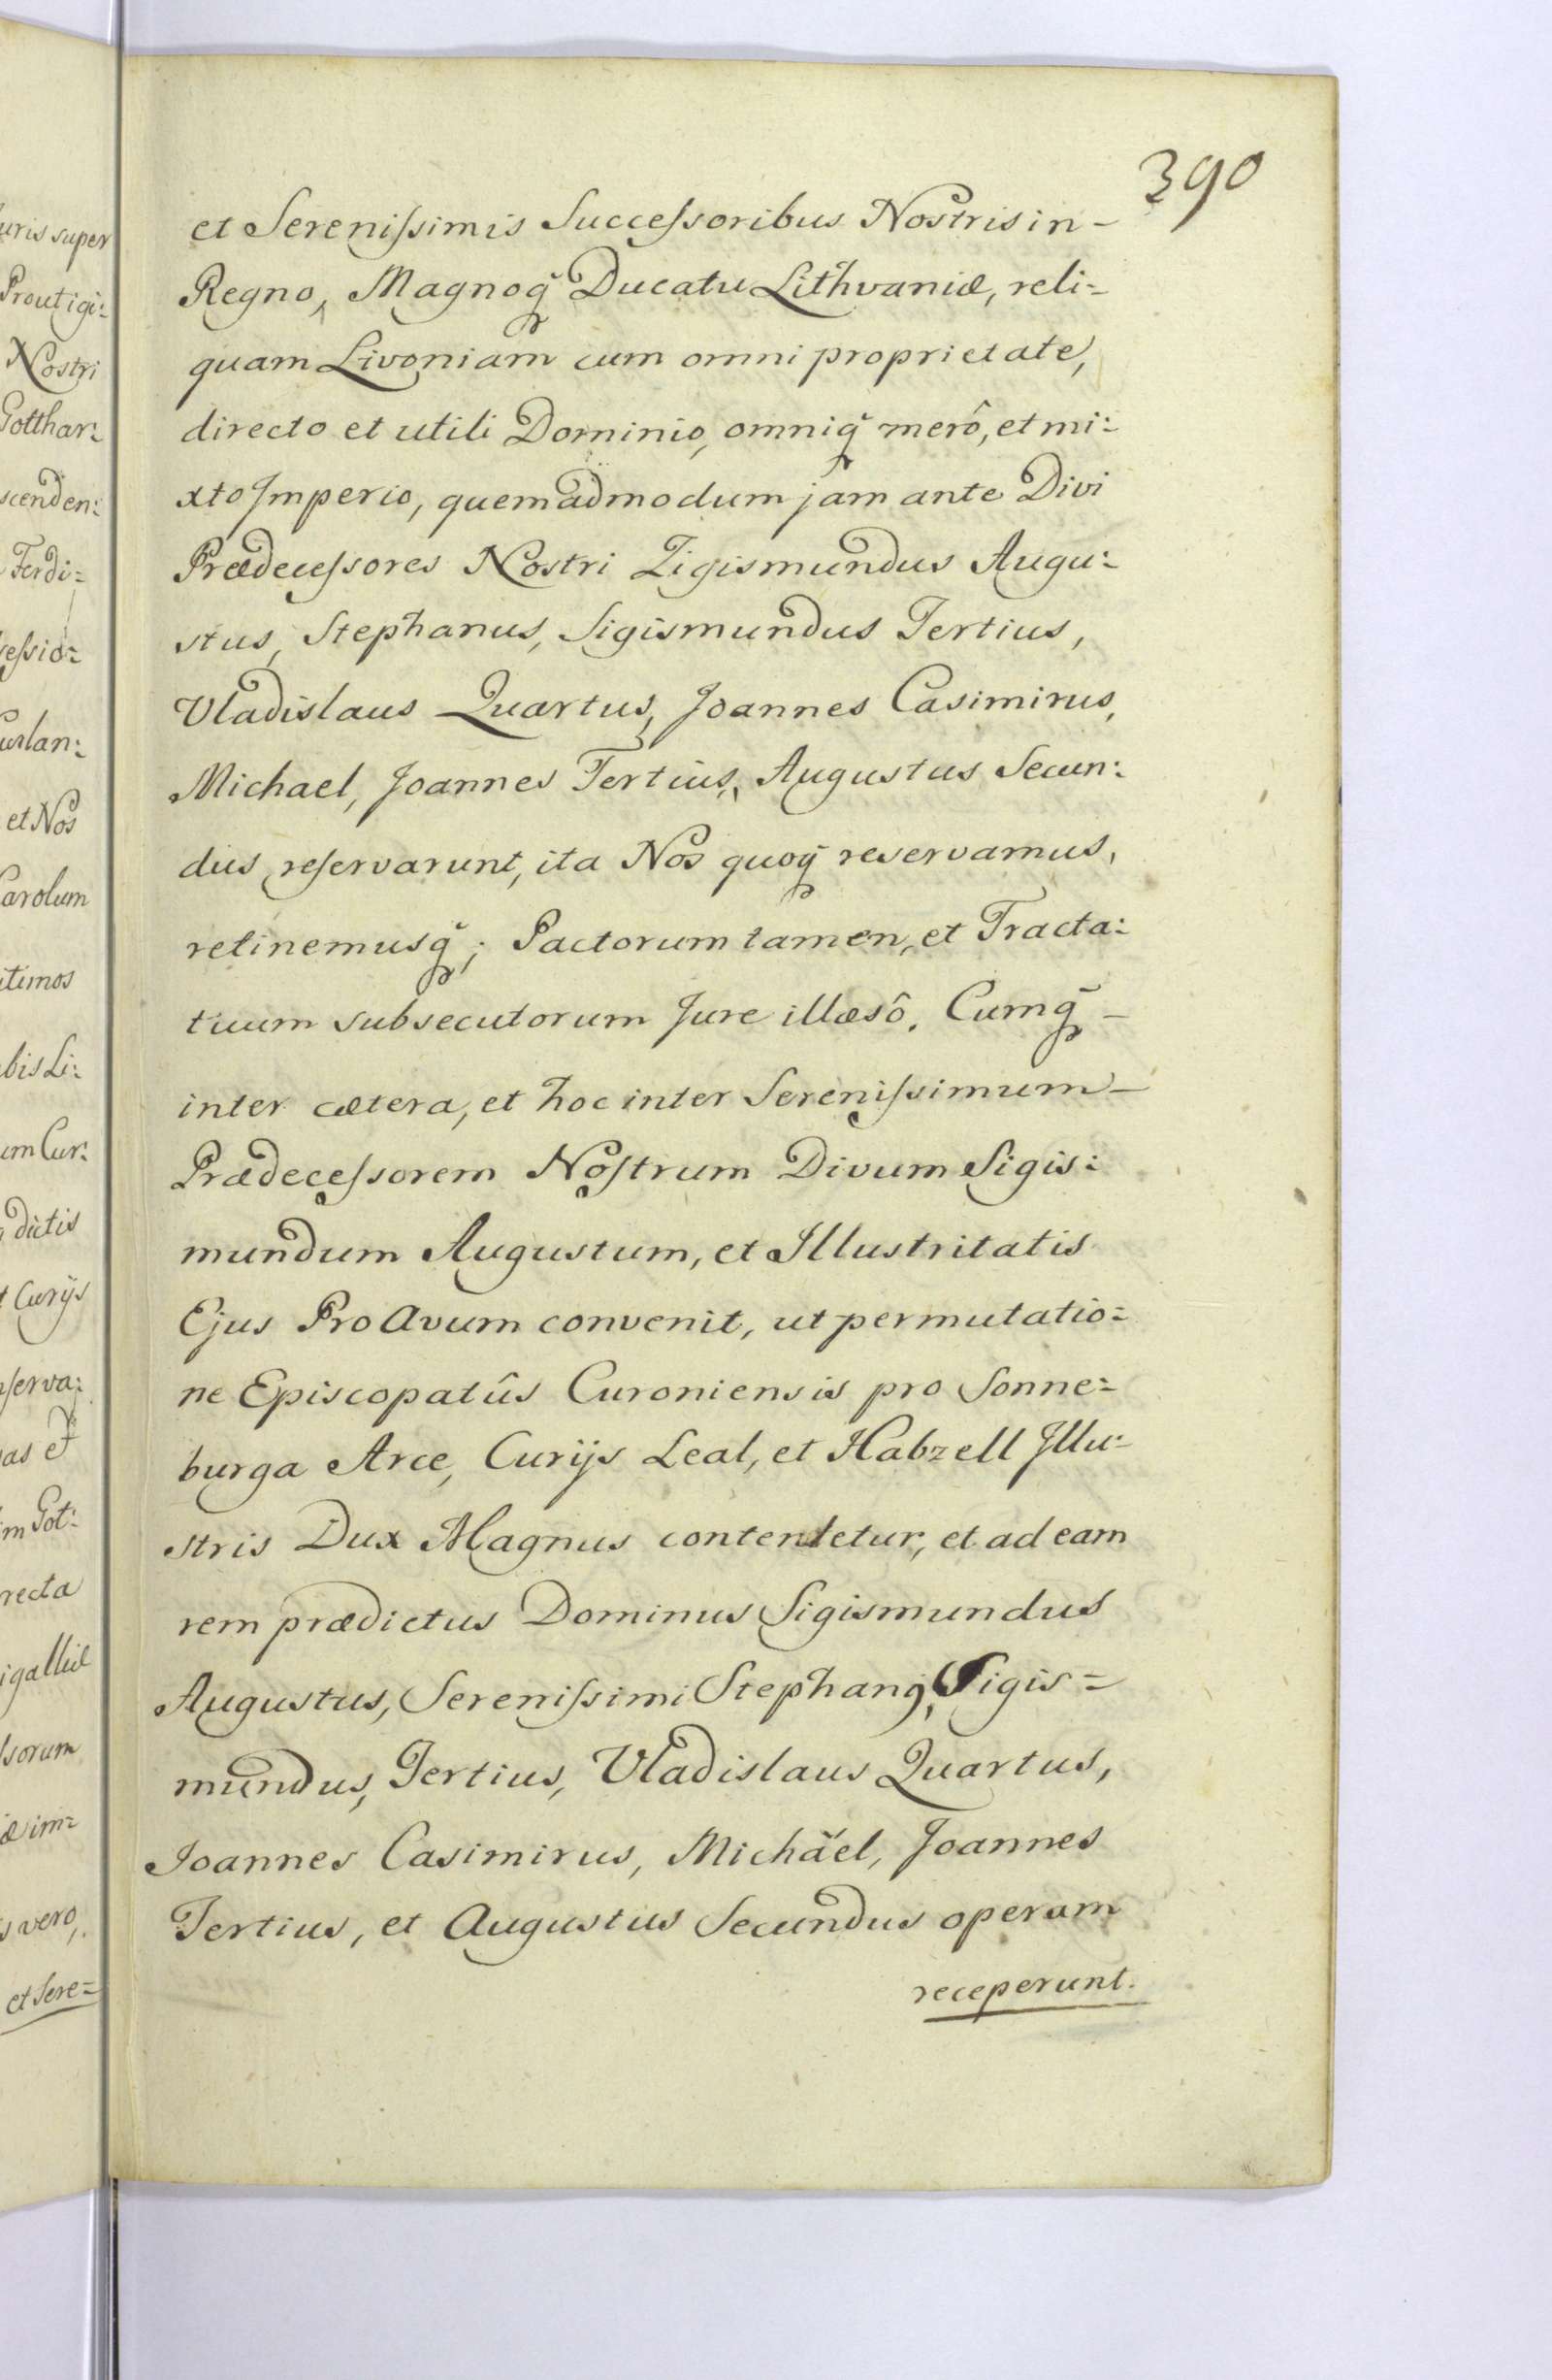 390
et Sereniſsimis Succeſsoribus Nostris in-
Regno, Magnoq̃ Ducatu Lithvaniæ, reli=
quam Livoniam cum omni proprietate,
directo et utili Dominio, omniq̃ merô, et mi:
xto Imperio, quemadmodum jam ante Divi
Prædeceſsores Nostri Zigismundus Augu:
stus, Stephanus, Sigismundus Tertius,
Vladislaus Quartus, Joannes Casimirus,
Michael, Joannes Tertius, Augustus Secun:
dus reſervarunt, ita Nos quoq̃ reservamus,
retinemusq̃; Pactorum tamen, et Tracta:
tuum subsecutorum Jure illæsô. Cumq̃ -
inter cætera, et hoc inter Sereniſsimum -
Prædeceſsorem Noſtrum Divum Sigis:
mundum Augustum, et Illustritatis
Ejus ProAvum convenit, ut permutatio=
ne Episcopatûs Curoniensis pro Sonne=
burga Arce, Curijs Leal, et Habzell Illu:
stris Dux Magnus contentetur, et ad eam
rem prædictus Dominus Sigismundus
Augustus, Sereniſsimi Stephanq, Sigis=
mundus, Tertius, Vladislaus Quartus,
Joannes Casimirus, Michäel, Joannes
Tertius, et Augustus Secundus operam
receperunt.
uris super
Prout igi:
Nostri
Gotthar:
scenden:
Ferdi=
ſeſsio=
Curlan:
et Nos
Carolum
itimos
bis Li:
um Cur:
dictis
t Curijs
nſerva:
as et
m Got:
recta
igalliæ
ſsorum
æ im=
s vero,
et Sere=